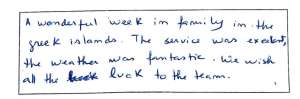 A wonderful week in family in the
greek islands. The service was excelent,
the weather was fantastic. We wish
all the luck to the team.